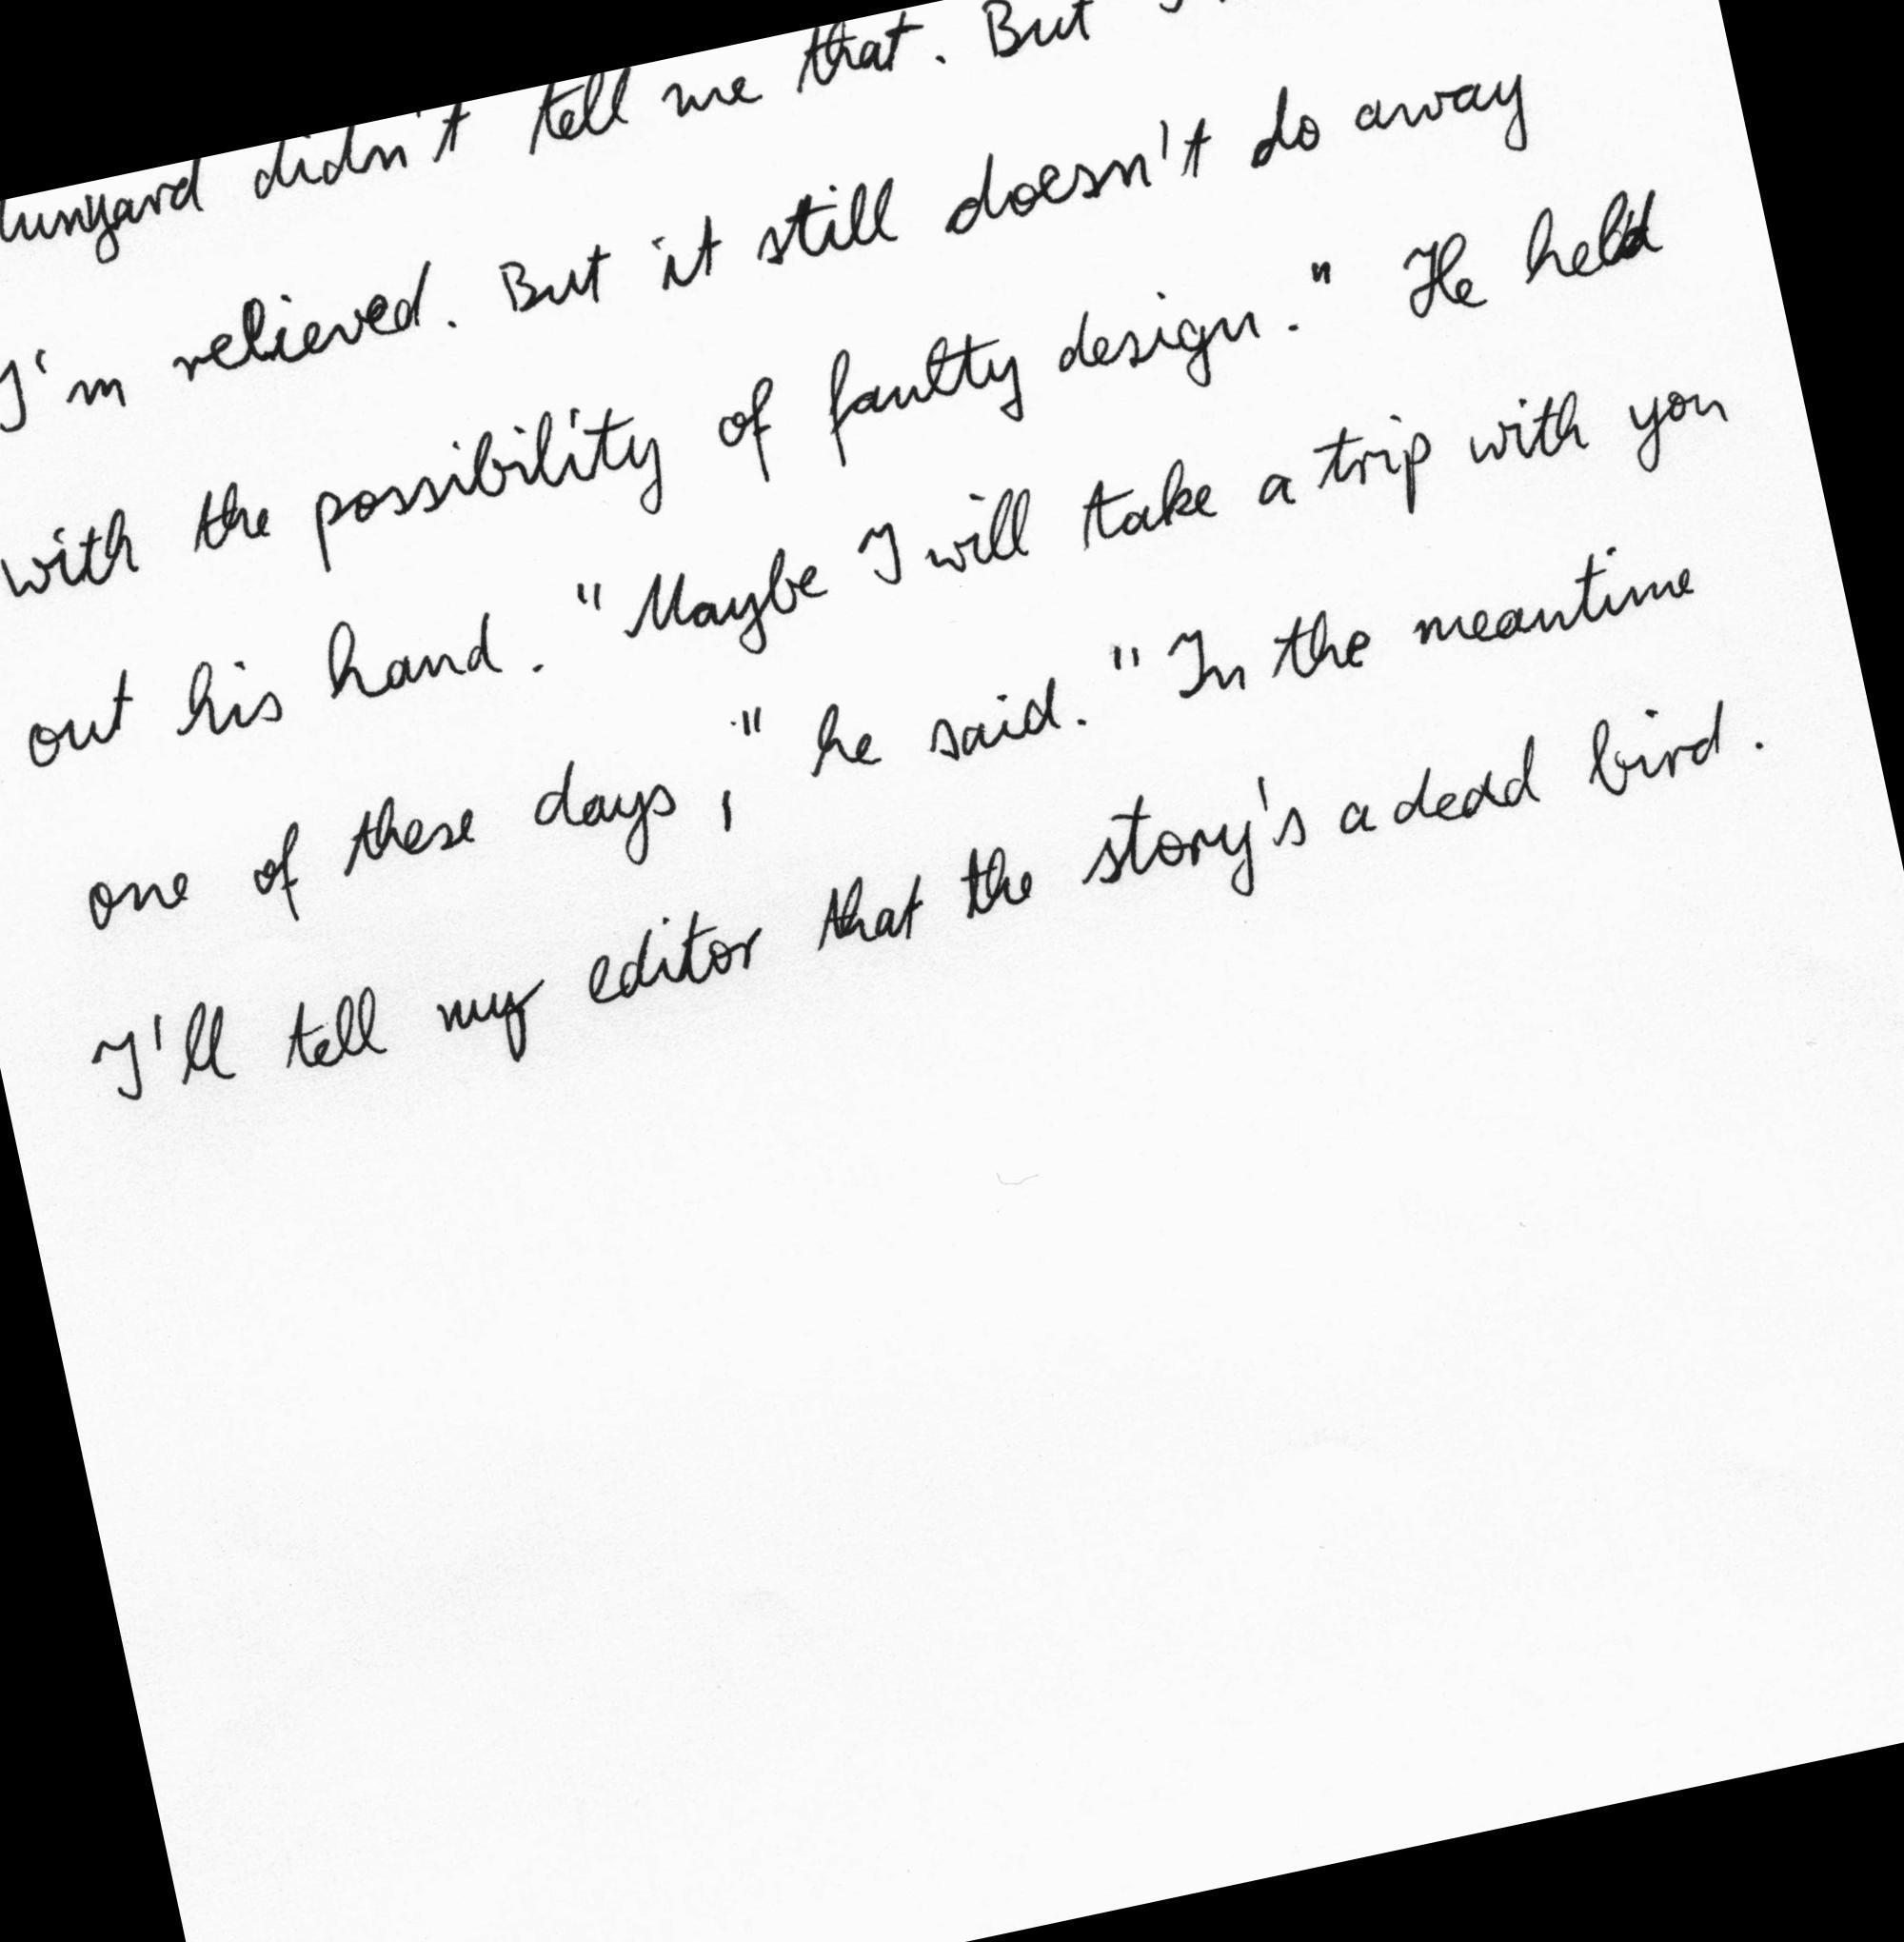 didn't tell me that. But
I'm relieved. But it still doesn't do away
with the possibility of faulty design." He held
out his hand. "Maybe I will take a trip with you
one of these days," he said. "In the meantime
I'll tell my editor that the story's a dead bird.